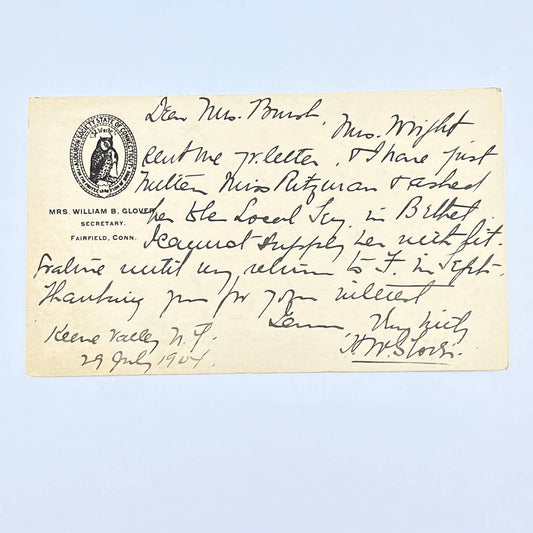 AUDUBON SOCIETY STATE OF CONNECTICUT
MRS. WILLIAM B. GLOVER
SECRETARY.
FAIRFIELD, CONN.
Dear Mrs.
Mrs. Wright
sent me yr. letter, & I have just
written Miss & asked
her to be Local Sec'y. in Bethel.
I cannot supply her with lit-
erature until my return to F. in Sept.
Thanking you for your interest
I am Very truly
H. W. Glover.
Keene Valley N. Y.
29 July 1904.